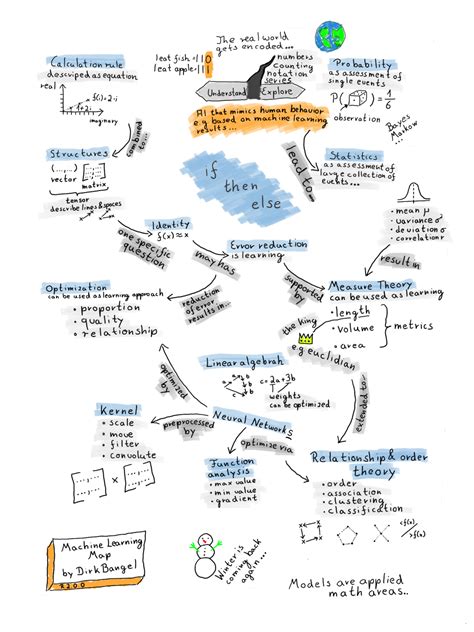 The real world
gets encoded...
1eat fish = 110
1eat apple = 111
numbers
counting
notation
series
Understand
Explore
AI that mimics human behavior
e.g based on machine learning
results...
Calculation rule
descriped as equation
real
f(i)=2-i
imaginary
combined
to...
Structures
vector
matrix
tensor
describe lines & spaces
if
then
else
lead to...
Probability
as assessment of
single events
P( ) = 1/6
observation
Bayes
Markow...
Statistics
as assessment of
large collection of
events...
• mean μ
• variance σ²
• deviation σ
• correlation r
result in
Identity
f(x) ≈ x
one specific
question
Error reduction
is learning
may has
supported
by
Measure Theory
can be used as learning
• length
• volume
• area
metrics
the king
e.g euclidian
extended to...
Optimization
can be used as learning approach
• proportion
• quality
• relationship
reduction
of error
results in..
optimized
by
Linear algebrah
a
b
c
c = 2a + 3b
weights
can be optimized
Neural Networks
preprocessed
by
optimise via
Kernel
• scale
• move
• filter
• convolute
×
Function
analysis
• max value
• min value
• gradient
Relationship & order
theory
• order
• association
• clustering
• classification
<f(x)
>f(x)
Machine Learning
Map
by Dirk Bangel
Winter is
coming back
again...
Models are applied
math areas..